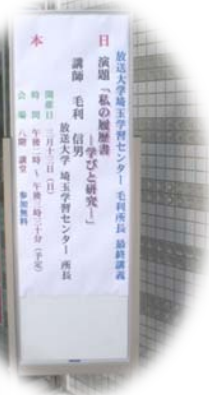 放送大学埼玉学習センター 毛利所長 最終講義
日 演題「私の履歴書
―学びと研究―」
講師 毛利 信男
放送大学 埼玉学習センター 所長
本 開催日 三月十三日(日)
時間 午後二時~午後三時三十分(予定)
会場 八階 講堂 参加無料